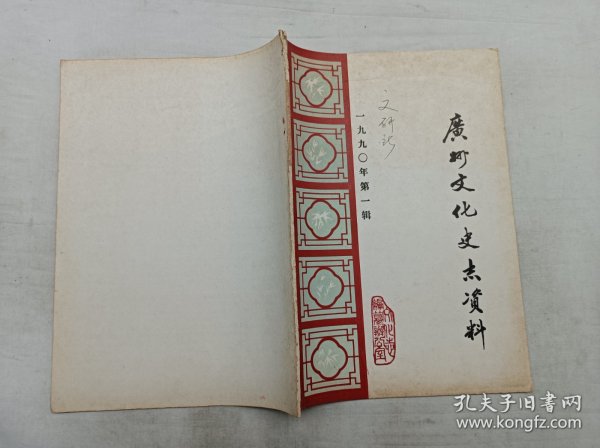 廣州文化史志资料
文研所
一九九〇年第一辑
孔夫子旧书网
www.kongfz.com